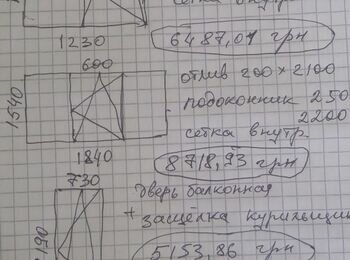 сетка внутр
1230
6487,01 грн
600
отлив 200×2100
1540
подоконник 250
2200
сетка внутр.
1840
8718,93 грн
730
дверь балконная
+ защёлка курильщи
190
5153,86 грн